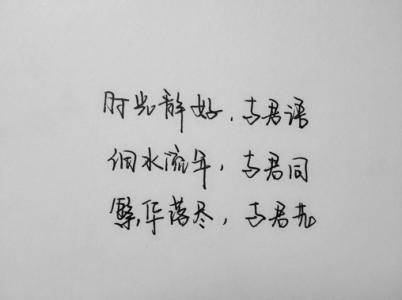 时光静好，与君语
细水流年，与君同
繁华落尽，与君老